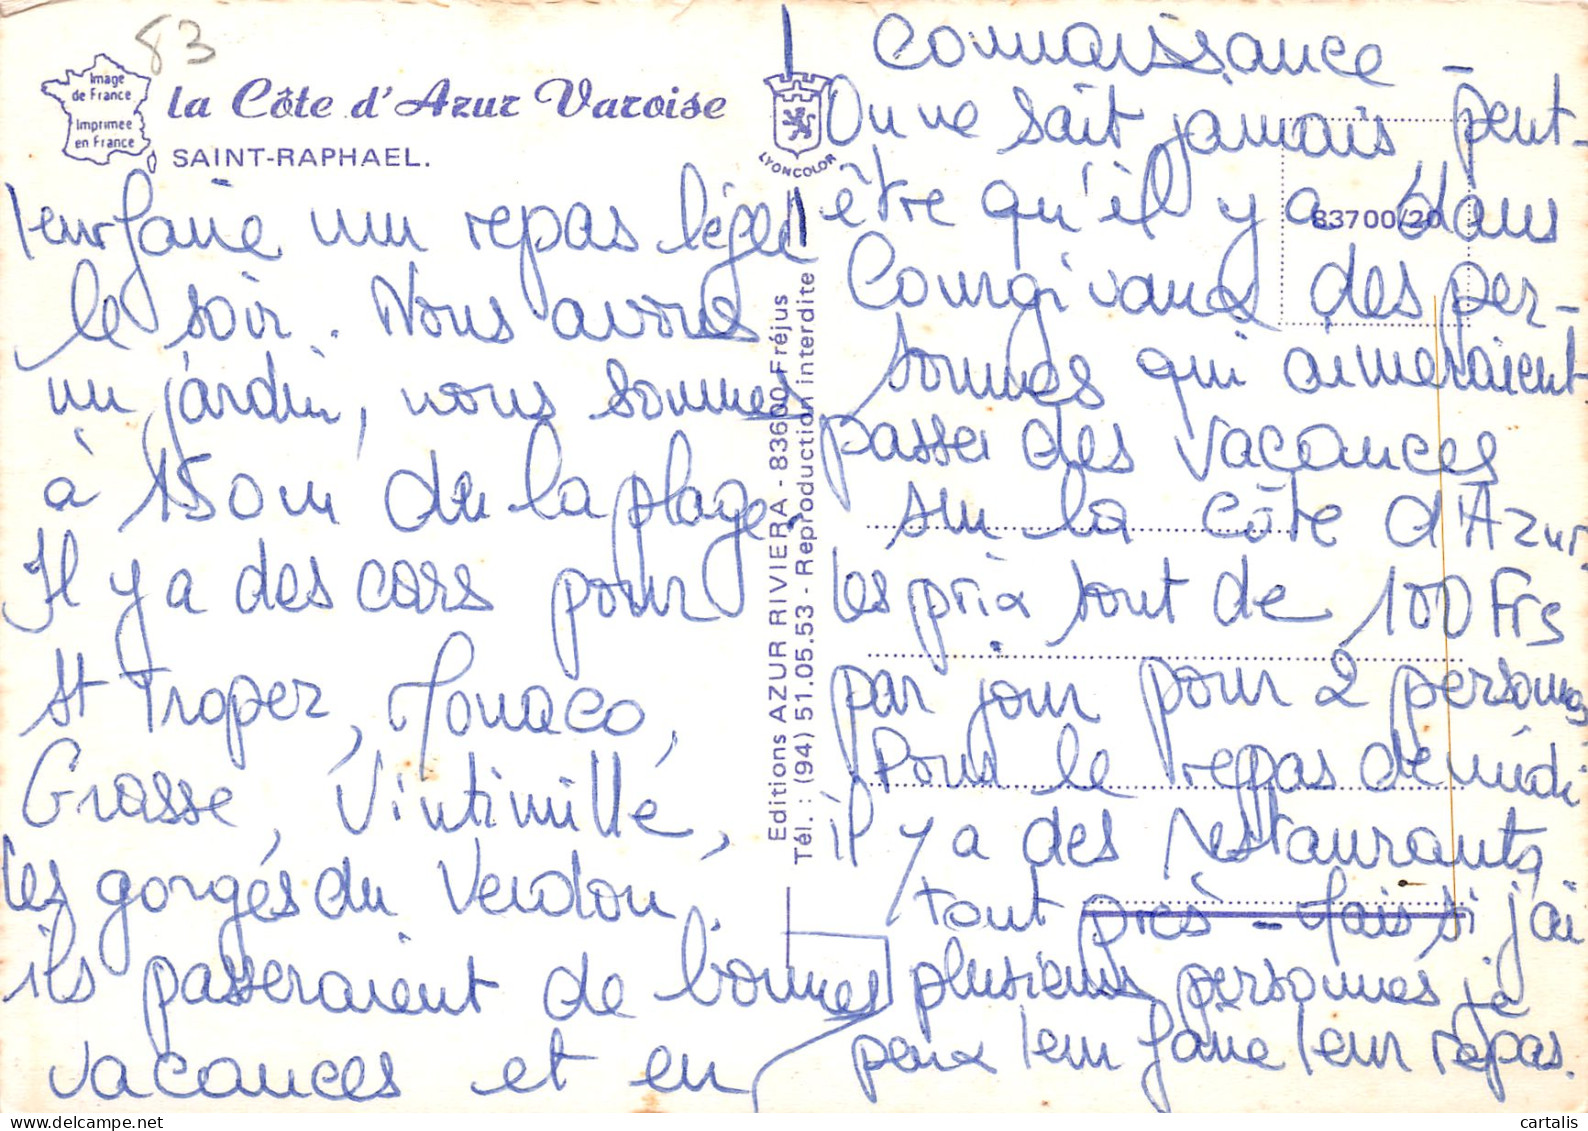 83
Image
de France
Imprimee
en France
la Côte d'Azur Varoise
SAINT-RAPHAEL.
LYONCOLOR
leur faire un repas léger
le soir. Nous avons
un jardin, nous sommes
à 150 m de la plage.
Il y a des cars pour
St Tropez, Monaco,
Grasse, Vintimille,
les gorges du Verdon,
ils passeraient de bonnes
vacances et en
Editions AZUR RIVIERA - 83600 Fréjus
Tél. : (94) 51.05.53 - Reproduction interdite
83700/20
connaissance -
On ne sait jamais peut-
être qu'il y a dans
Courgivaux des per-
sonnes qui aimeraient
passer des vacances
sur la côte d'Azur
les prix sont de 100 Frs
par jour pour 2 personnes
Pour le repas de midi
il y a des restaurants
tout près - Mais si j'ai
plusieurs personnes je
peux leur faire leur repas.